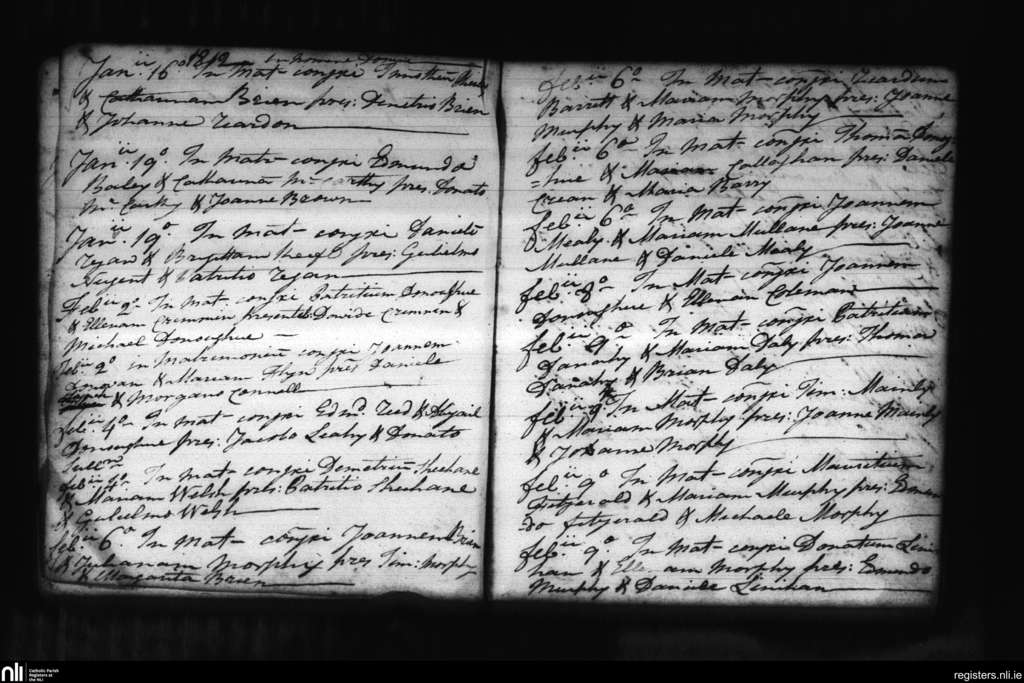 1812 In Nomine Domine
Janii 16o In mat- conjxi Timotheum Shea
& Catharinam Brien pres: Demetrio Brien
& Johanne Reardon
Janii. 19o. In mat- conjxi Edmundū
Bailey & Catharina McCarthy pres: Donato
Mc Carthy & Joanne Brown
Janii. 19o. In mat- conjxi Daniele
Regan & Brigittam Keefe pres: Gulielmo
Nugent & Patritio Regan
Febii 2o. In mat. conjxi Patritium Donoghue
& Ellenam Cremmin Presentib: Davide Cremnen &
Michael Donoughue
Febii 2o in matrimonium conjxi Joannem
Donovan & Mariam Flyn pres Daniele
& Morgano Connell
Febii. 4o. In mat- conjxi Edmd. Reed & Abigail
Donoughue pres: Jacobo Leahy & Donato
Sullvn
Febii 4o. In mat- conjxi Demetriū Sheehane
& Mariam Welsh pres: Patritio Sheehane
& Gulielmo Welsh
febii. 6o In mat- conjxi Joannem Brien
& Julianam Morphy pres Tim: Morphy
& Margarita Brien
febii 6o In mat- conjxi Geardum
Barrett & Mariam Morphy pres: Joanne
Murphy & Maria Morphy
febii. 6o In mat- conjxi Thoma DONog
=hue & Mariam Callaghan pres: Daniele
Crean & Maria Barry
febii 6o In mat- conjxi Joannem
Mealy & Mariam Mullane pres: Joanne
Mullane & Daniele Mealy
febii 8o In Mat- conjxi Joannem
Donoughue & Ellenam Coleman
febii 9o. In mat- conjxi Patritium
Danahy & Mariam Daly pres: Thoma
Danahy & Brian Daly
febii 9o In Mat- conjxi Tim: Mainly
& Mariam Morphy pres: Joanne Mainly
& Johanne Morphy
febii 9o In mat- conjxi Mauritium
Fitzgerald & Mariam Murphy pres: Edmun
do fitzgerald & Michaele Morphy
febii 9o. In mat- conjxi Donatum Lini
han & Ellenam Morphy pres: Edmundo
Murphy & Daniele Linihan
nli
Catholic Parish
Registers at
the NLI
registers.nli.ie